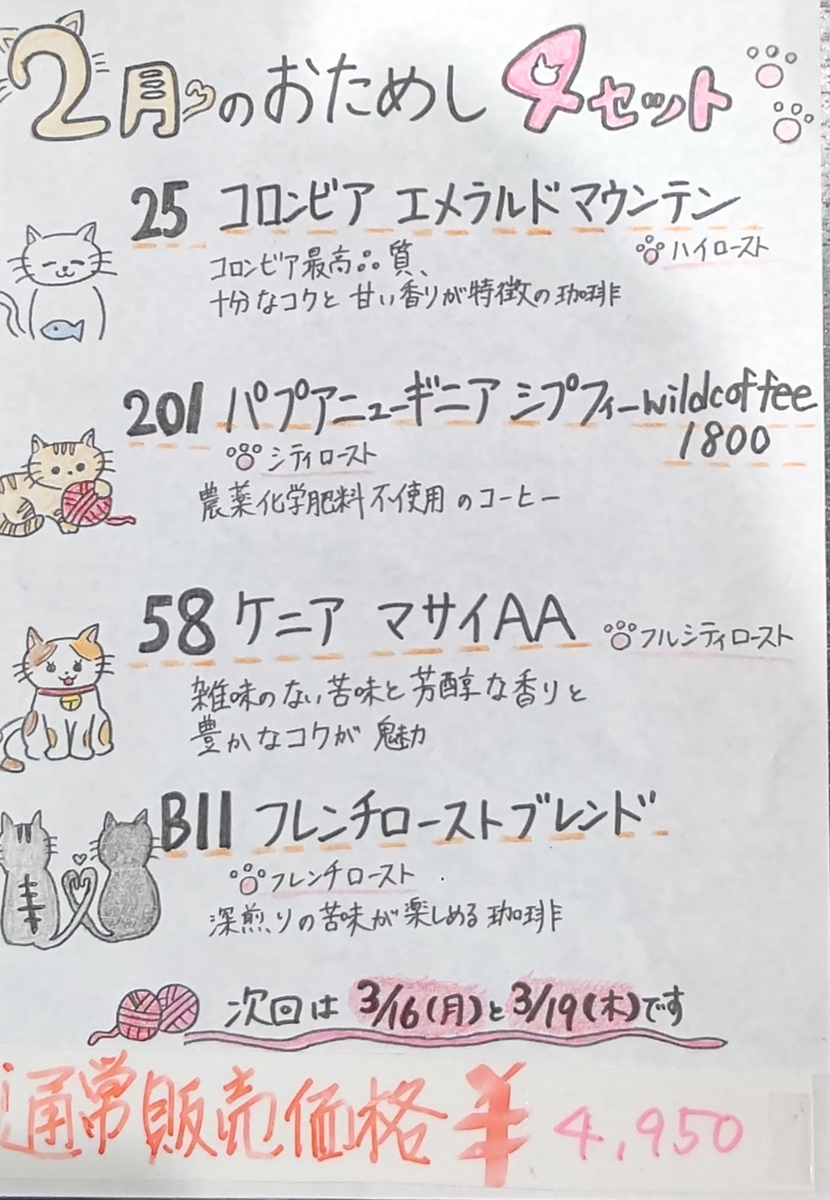 2月のおためし4セット
25 コロンビア エメラルドマウンテン
ハイロースト
コロンビア最高品質、
十分なコクと甘い香りが特徴の珈琲
201 パプアニューギニア シプフィーwildcoffee
1800
シティロースト
農薬化学肥料不使用のコーヒー
58 ケニア マサイAA
フルシティロースト
雑味のない苦味と芳醇な香りと
豊かなコクが魅力
B11 フレンチローストブレンド
フレンチロースト
深煎りの苦味が楽しめる珈琲
次回は3/16(月)と3/19(木)です
通常販売価格 ¥4,950